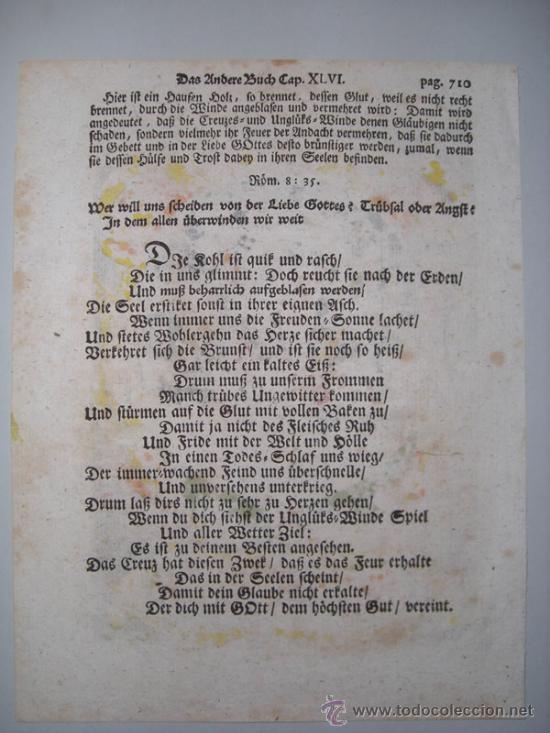 Das Andere Buch Cap. XLVI. pag. 710
Hier ist ein Haufen Holt, so brennet, dessen Glut, weil es nicht recht
brennet, durch die Winde angeblasen und vermehret wird: Damit wird
angedeutet, daß die Creuzes- und Unglüks-Winde denen Gläubigen nicht
schaden, sondern vielmehr ihr Feuer der Andacht vermehren, daß sie dadurch
im Gebett und in der Liebe GOttes desto brünstiger werden, zumal, wenn
sie dessen Hülfe und Trost dabey in ihren Seelen befinden.
Röm. 8: 35.
Wer will uns scheiden von der Liebe Gottes? Trübsal oder Angst?
In dem allen überwinden wir weit
DJe Kohl ist quik und rasch/
Die in uns glimmt: Doch reucht sie nach der Erden/
Und muß beharrlich aufgeblasen werden/
Die Seel erstiket sonst in ihrer eignen Asch.
Wenn immer uns die Freuden-Sonne lachet/
Und stetes Wohlergehn das Herze sicher machet/
Verkehret sich die Brunst/ und ist sie noch so heiß/
Gar leicht ein kaltes Eiß:
Drum muß zu unserm Frommen
Manch trübes Ungewitter kommen/
Und stürmen auf die Glut mit vollen Baken zu/
Damit ja nicht des Fleisches Ruh
Und Fride mit der Welt und Hölle
In einen Todes-Schlaf uns wieg/
Der immer-wachend Feind uns überschnelle/
Und unversehens unterkrieg.
Drum laß dirs nicht zu sehr zu Herzen gehen/
Wenn du dich siehst der Unglüks-Winde Spiel
Und aller Wetter Ziel:
Es ist zu deinem Besten angesehen.
Das Creuz hat diesen Zwek/ daß es das Feur erhalte
Das in der Seelen scheint/
Damit dein Glaube nicht erkalte/
Der dich mit GOtt/ dem höchsten Gut/ vereint.
www.todocoleccion.net